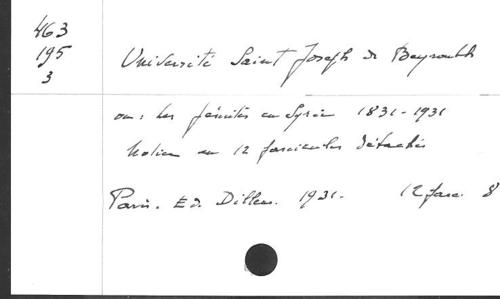 463
195
3
Université Saint Joseph de Beyrouth
ou: Les Jésuites en Syrie 1831-1931
Notice en 12 fascicules détachés
Paris. Ed. Dillen. 1931. 12 fasc. 8